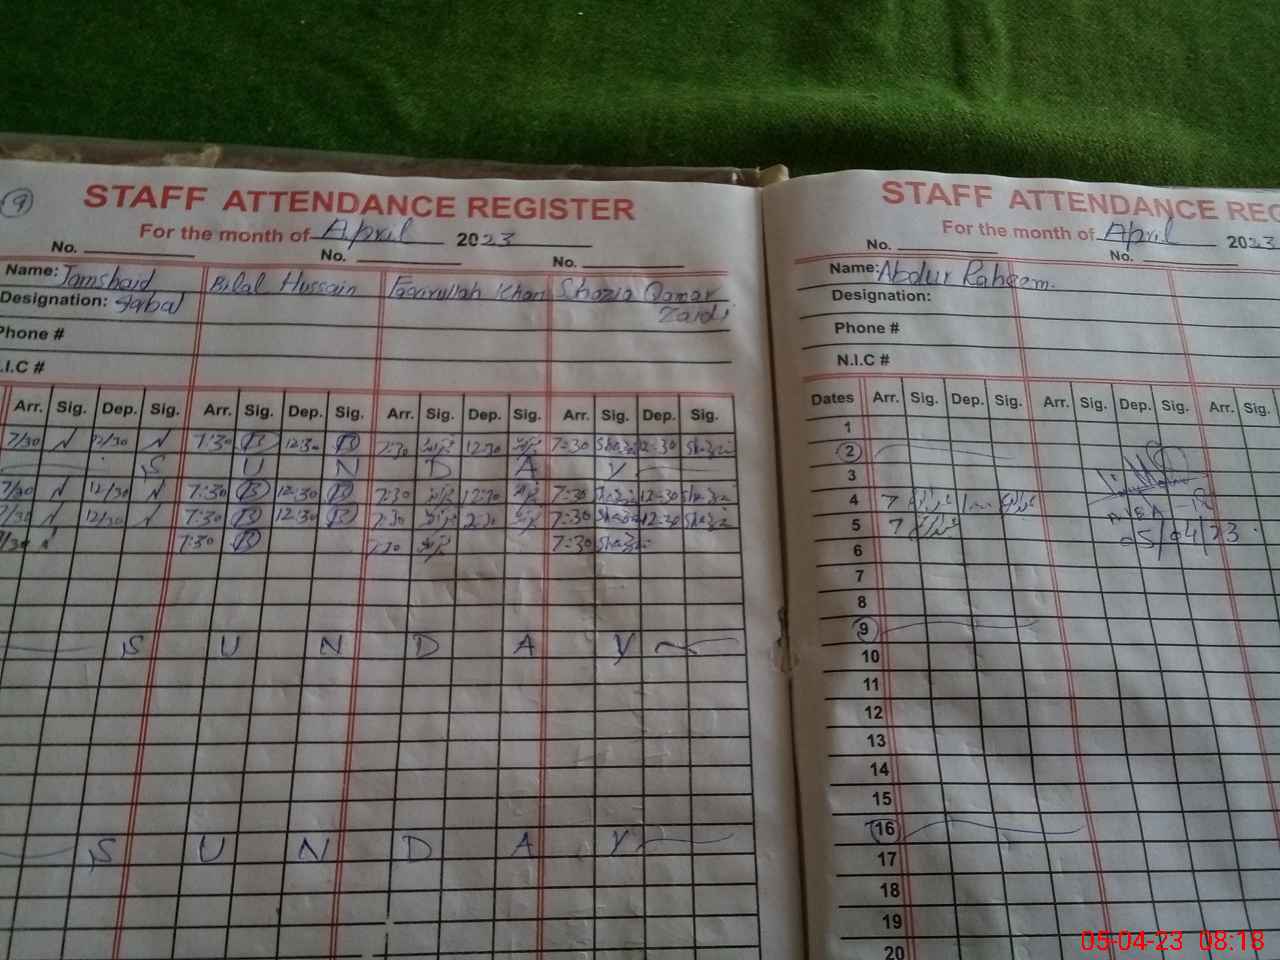 9
STAFF ATTENDANCE REGISTER
For the month of April 2023
No. No. No.
Name: Jamshaid Bilal Hussain Faqirullah Khan Shazia Qamar
Designation: Iqbal Zaidi
Phone #
.I.C #
Arr. Sig. Dep. Sig. Arr. Sig. Dep. Sig. Arr. Sig. Dep. Sig. Arr. Sig. Dep. Sig.
7/30 N 12/30 N 7:30 B 12:30 B 7:30 12:30 7:30 Shazi 12:30 Shazi
S U N D A Y
7/30 N 12/30 N 7:30 B 12:30 B 7:30 12:30 7:30 Shazi 12:30 Shazi
7/30 N 12/30 N 7:30 B 12:30 B 7:30 12:30 7:30 Shazi 12:30 Shazi
7/30 7:30 B 7:30 7:30 Shazi
S U N D A Y
S U N D A Y
STAFF ATTENDANCE REG
For the month of April 2023
No. No.
Name: Abdur Raheem.
Designation:
Phone #
N.I.C #
Dates Arr. Sig. Dep. Sig. Arr. Sig. Dep. Sig. Arr. Sig.
1
2
3
4 7
5 7 05/04/23
6
7
8
9
10
11
12
13
14
15
16
17
18
19
20
05-04-23 08:18